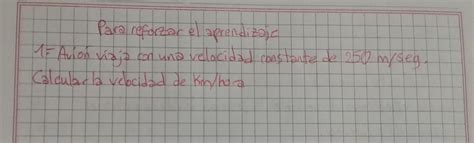 Para reforzar el aprendizaje
1= Avion viaja con una velocidad constante de 250 m/seg.
Calcular la velocidad de Km/hora